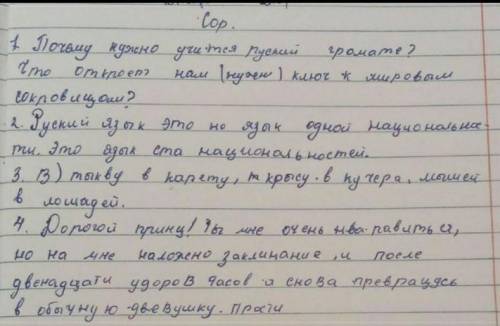 Сор.
1. Почему нужно учится руский громате?
Что откроет нам (нужен) ключ к мировым
сокровищом?
2. Руский язык это но язык одной национальнос-
ти. Это язык ста национальностей.
3. В) тыкву в карету, крысу в кучера, мышей
в лошадей.
4. Дорогой принц! Ты мне очень нравиться,
но на мне наложено заклинание, и после
двенадцати ударов часов я снова превращусь
в обычную девушку. Прости